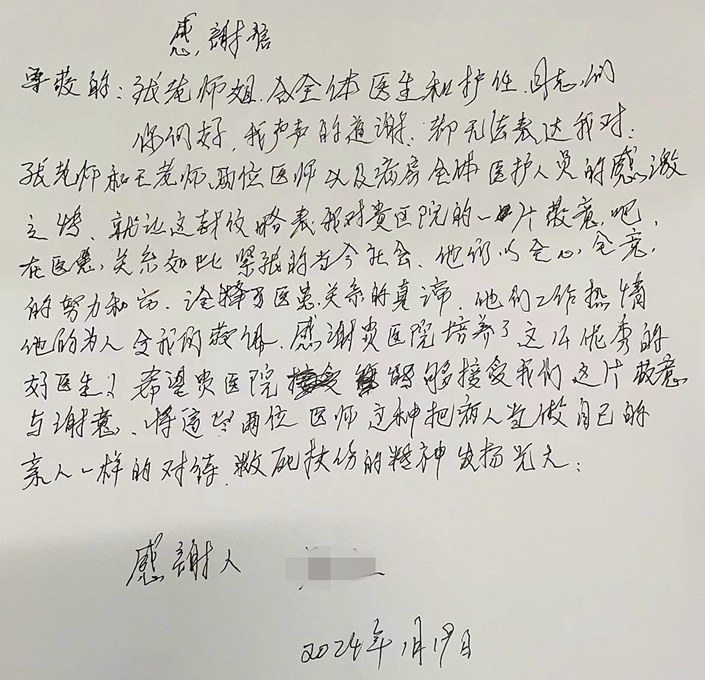 感謝信
尊敬的:张老师姐.合全体医生和护仕.同志们
你们好,我声声的道谢.都无法表达我对:
张老师和王老师、两位医师以及病房全体医护人员的感激
之情、就让这封仪略表我对贵医院的一片敬意吧,
在医患,关系如此紧张的当今社会、他们以全心,全意,
的努力和 诠释了医患关系的真谛,他们工作热情
他的为人令我们敬佩、感谢贵医院培养了这位优秀的
好医生了希望贵医院 能够接受我们这片敬意
与谢意、将这 两位医师这种把病人当做自己的
亲人一样的对待,救死扶伤的精神发扬光大:
感謝人
2024年1月19日